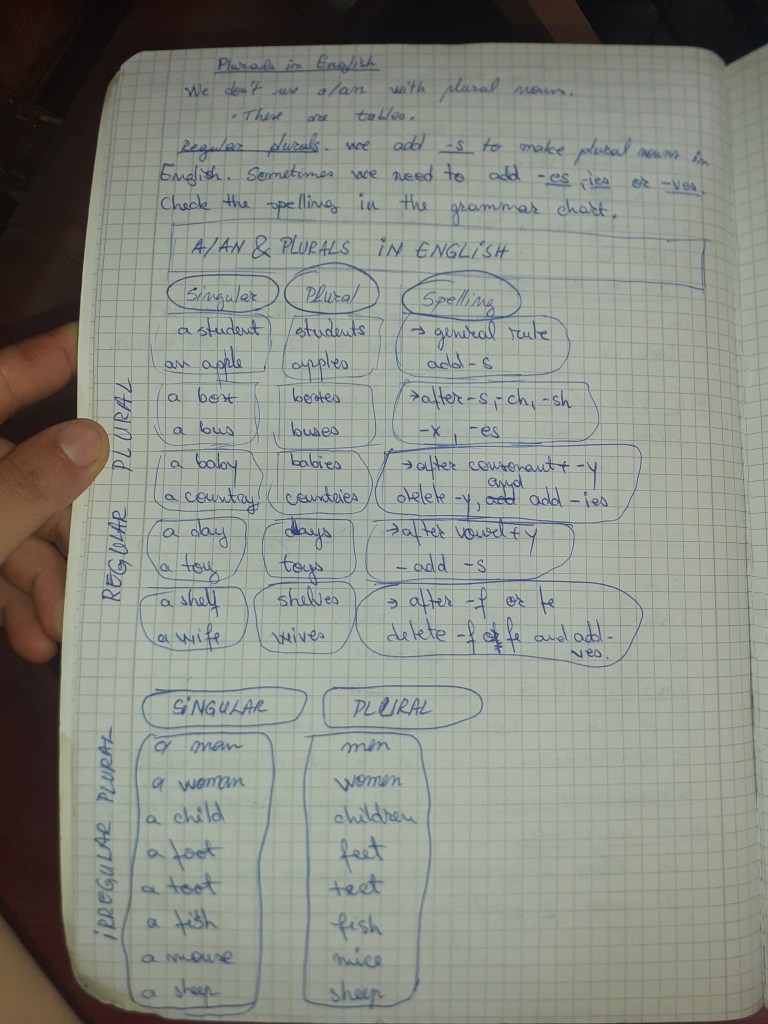 Plurals in English
We don't use a/an with plural nouns.
• There are tables.
Regular plurals. we add -s to make plural nouns in
English. Sometimes we need to add -es, -ies or -ves.
Check the spelling in the grammar chart.
A/AN & PLURALS iN ENGLiSH
Singular Plural Spelling
REGULAR PLURAL
a student students → general rule
an apple apples add -s
a box boxes → after -s, -ch, -sh
a bus buses -x, -es
a baby babies → after consonant + -y
and
a country countries delete -y, add -ies
a day days → after vowel + y
a toy toys - add -s
a shelf shelves → after -f or fe
a wife wives delete -f or fe and add -
ves.
SiNGULAR PLURAL
iRREGULAR PLURAL
a man men
a woman women
a child children
a foot feet
a toot teet
a fish fish
a mouse mice
a sheep sheep